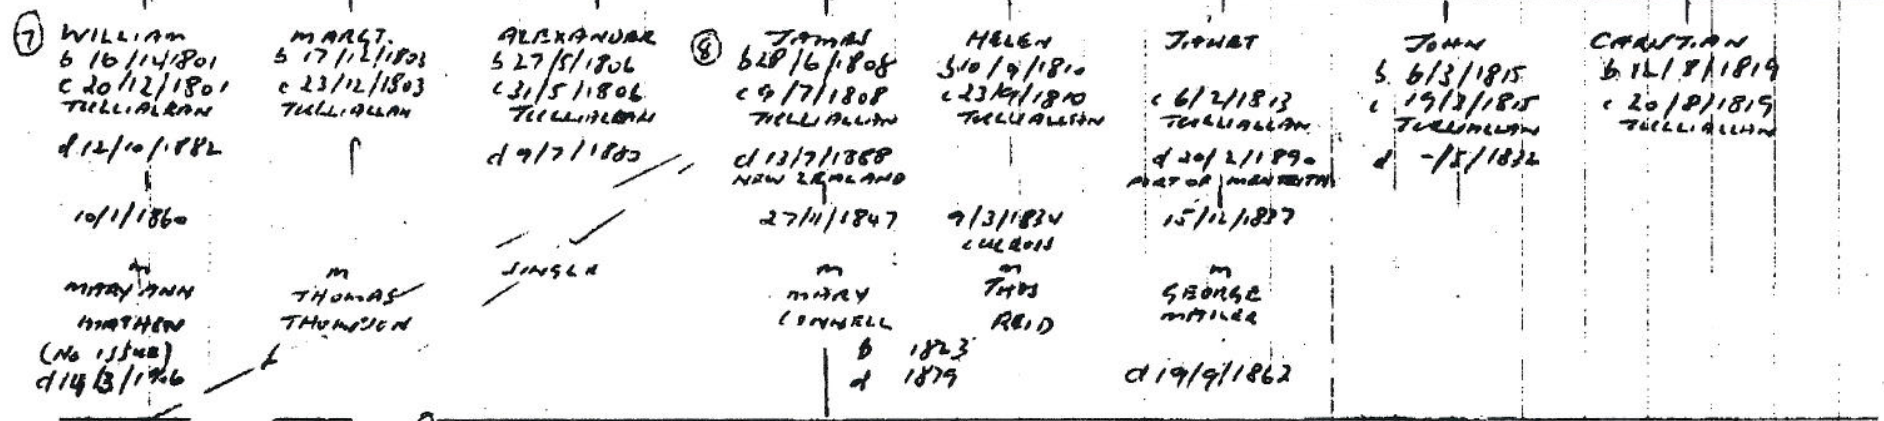 7
WILLIAM
b 16/12/1801
c 20/12/1801
TULLIALLAN
d 12/10/1882
10/1/1860
m
MARY ANN
(NO ISSUE)
MARGT.
b 17/12/1803
c 23/12/1803
TULLIALLAN
m
THOMAS
THOMPSON
ALEXANDER
b 27/5/1806
c 31/5/1806
TULLIALLAN
SINGLE
8
JAMES
b 28/6/1808
c 9/7/1808
TULLIALLAN
d 13/7/1888
NEW ZEALAND
27/11/1847
m
MARY
CONNELL
b 1823
d 1879
HELEN
b 10/9/1810
c 23/9/1810
TULLIALLAN
9/3/1834
CULROSS
m
THOS
REID
JANET
c 6/2/1813
TULLIALLAN
d 20/2/1890
PORT OF MENTEITH
15/12/1837
m
GEORGE
d 19/9/1862
JOHN
b 6/3/1815
c 19/3/1815
TULLIALLAN
d -/5/1832
CHRISTIAN
b 12/8/1819
c 20/8/1819
TULLIALLAN